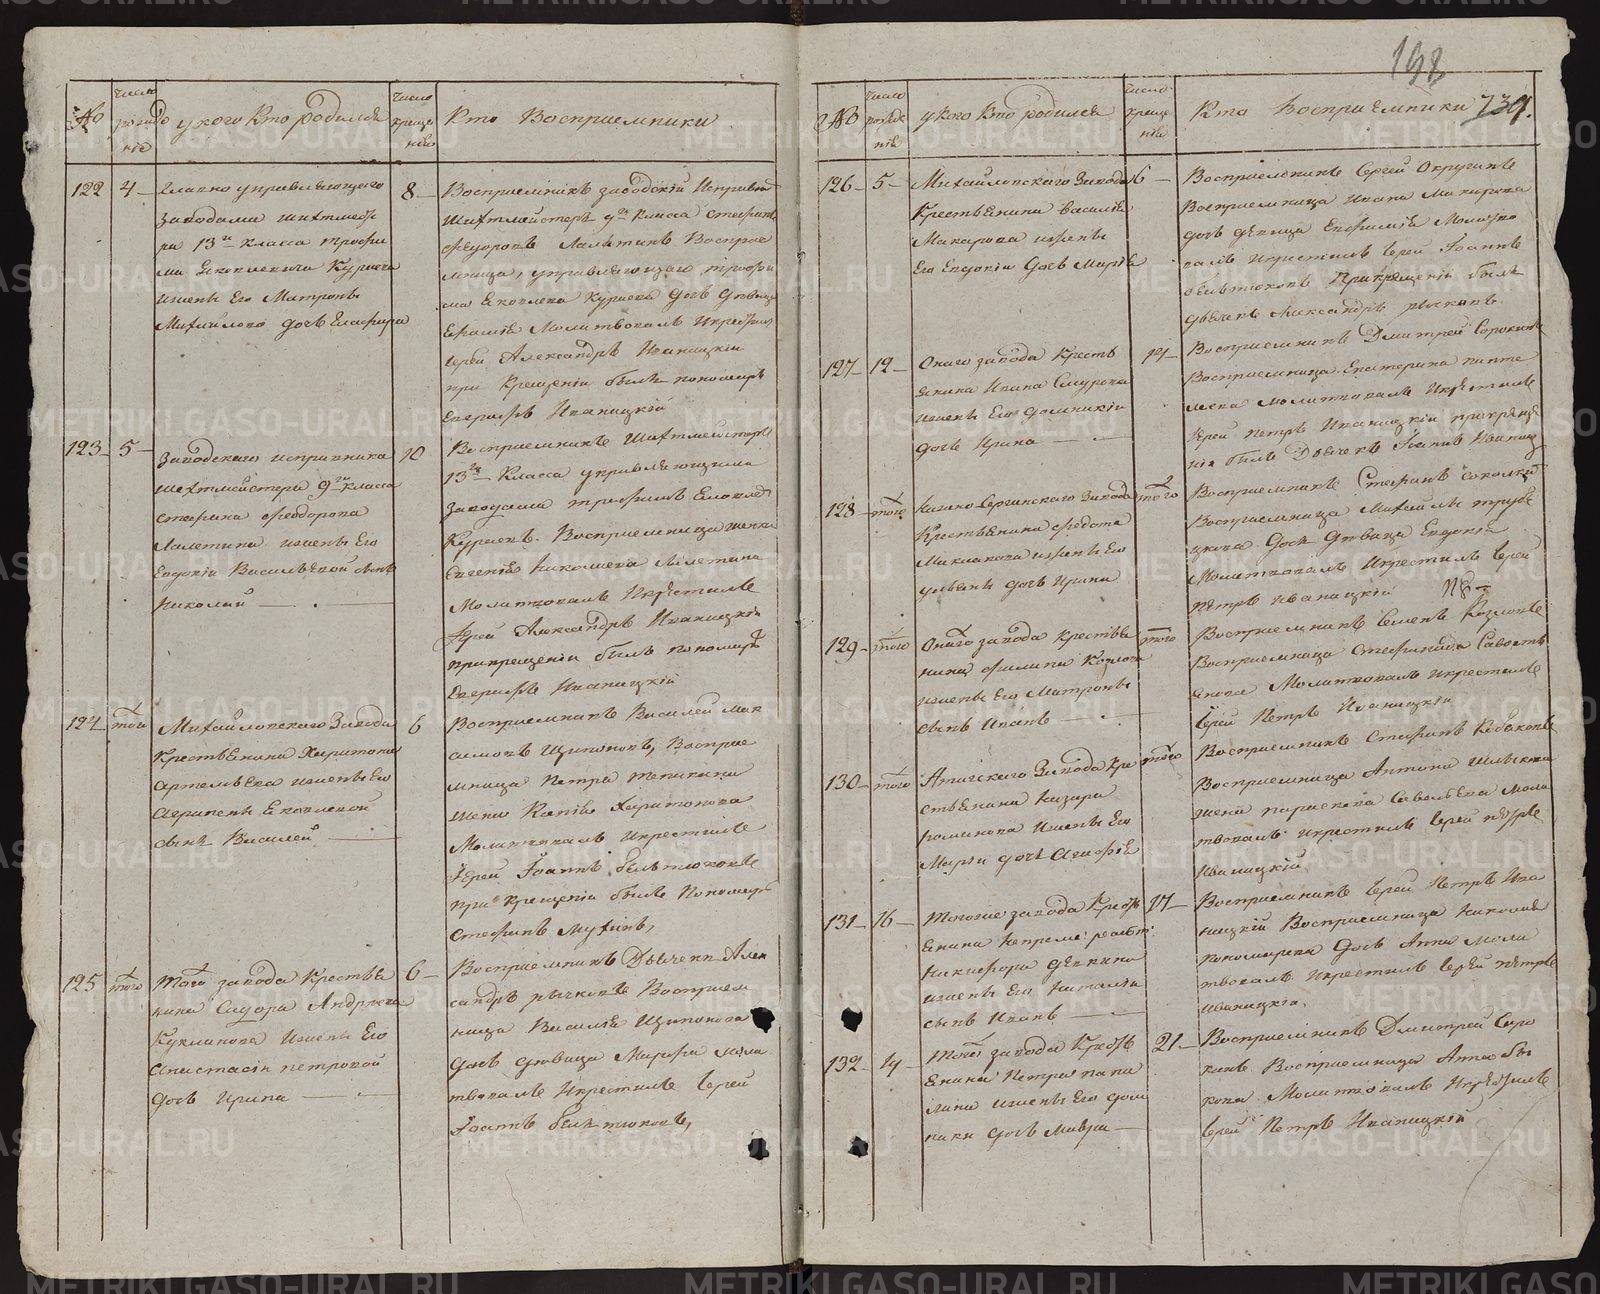 198
739.
№
число рожде нїе
у кого кто родился
число креще нїя
Кто Восприемники
122 4
Главно управляющего
заводами шихтмейсте
ра 13го класса Трофи
ма Яковлевича Кураева
и жены Его Матроны
Михайлово дочь Елафира
8
Восприемникъ заводскїй исправни
шихтмейстеръ 9го класса Стефанъ
Федоровъ Лалетинъ Восприе
мница, управляющаго Трофи
ма Яковлева Кураева дочь девица
Молитвовалъ и крестилъ
Иерей Александръ Иваницкїи
при крещенїи былъ пономарь
Иваницкїй
123 5
Заводскаго исправника
шихтмейстера 9го класса
Стефана Феодорова
Лалетина и жены Его
Евдокїи Васильевой сынъ
Николай
10
Восприемникъ шихтмейстеръ
13го класса управляющїи
заводами Трофимъ Яковлевъ
Кураевъ. Восприемница жена
Евгенїя Николаева Лалетина
Молитвовалъ и крестилъ
Їерей Александръ Иваницкїи
при крещенїи былъ пономарь
Иваницкїй
124 того
Михайловского завода
Крестьянина Харитона
Артемьева и жены Его
Агрипены Яковлевой
сынъ Василей
6
Восприемникъ Василей Мак
симовъ Щипоновъ, Восприе
мница Петра
жена Харитонова
Молитвовалъ и крестилъ
Їерей Їоаннъ Бельтюковъ
при крещенїи былъ пономарь
Стефанъ Мухинъ,
125 того
Того завода Крестья
нина Сидора Андреева
Кукланова и жены Его
Анастасїи Петровой
дочь Ирина
6
Восприемникъ Дьячекъ Алек
сандръ Рычковъ Восприем
ница Василья Щипонова
дочь девица Марфа моли
твовалъ и крестилъ Їерей
Їоаннъ Бельтюковъ,
№
число рожде нїе
у кого кто родился
число креще нїя
Кто Восприемники
126 5
Михайловскаго завода
Крестьянина Василья
Макарова и жены
Его Евдокїи дочь Марїя
6
Восприемникъ Сергей Окружинъ
Восприемница Ивана Макарова
дочь девица Евфимїя Молитво
валъ и крестилъ Їерей Їоаннъ
Бельтюковъ При крещенїи былъ
дьячекъ Александръ Рычковъ.
127 12
Онаго завода Кресть
янина Ивана Смурова
и жены Его Домникїи
дочь Ирина
14
Восприемникъ Дмитрей Сорокинъ
Восприемница Екатерина Панте
леева Молитвовалъ и крестилъ
Їерей Петръ Иваницкїй при креще
нїи былъ Дьячекъ Їоаннъ Иваниц
128 того
Нижно Сергинскаго завода
Крестьянина Федота
Миклакова и жены Его
Ульяны дочь Ирина
того
Восприемникъ Стефанъ
Восприемница Михаилы Трубе
цкова дочь девица Евдокїя
Молитвовалъ и крестилъ Їерей
Петръ Иваницкїй
129 того
Онаго завода крестья
нина Филипа Козлова
и жены Его Матроны
сынъ Иванъ
того
Восприемникъ Семенъ Козловъ
Восприемница Стефанида Савость
янова Молитвовалъ и крестилъ
Їерей Петръ Иваницкїй
130 того
Атигскаго завода Кре
стьянина Назара
Романова и жены Его
Марьи дочь Агафїя
того
Восприемникъ Стефанъ Кобяковъ
Восприемница Антона Шлыкова
жена Парасковья Савельева Моли
твовалъ и крестилъ Їерей Петръ
Иваницкїй
131 16
Тогоже завода Кресть
янина
Никифора Девкина
и жены Его Наталїи
сынъ Иванъ
17
Восприемникъ Їерей Петръ Ива
ницкїй Восприемница Николая
пономарева дочь Анна моли
твовалъ и крестилъ Їерей Петръ
Иваницкїй,
132 14
Тогоже завода Кресть
янина Петра Папи
лина и жены Его Дом
ники дочь Мавра
21
Восприемникъ Дмитрей Соро
кинъ Восприемница Анна Бы
кова Молитвовалъ и крестилъ
Їерей Петръ Иваницкїй
METRIKI.GASO-URAL.RU